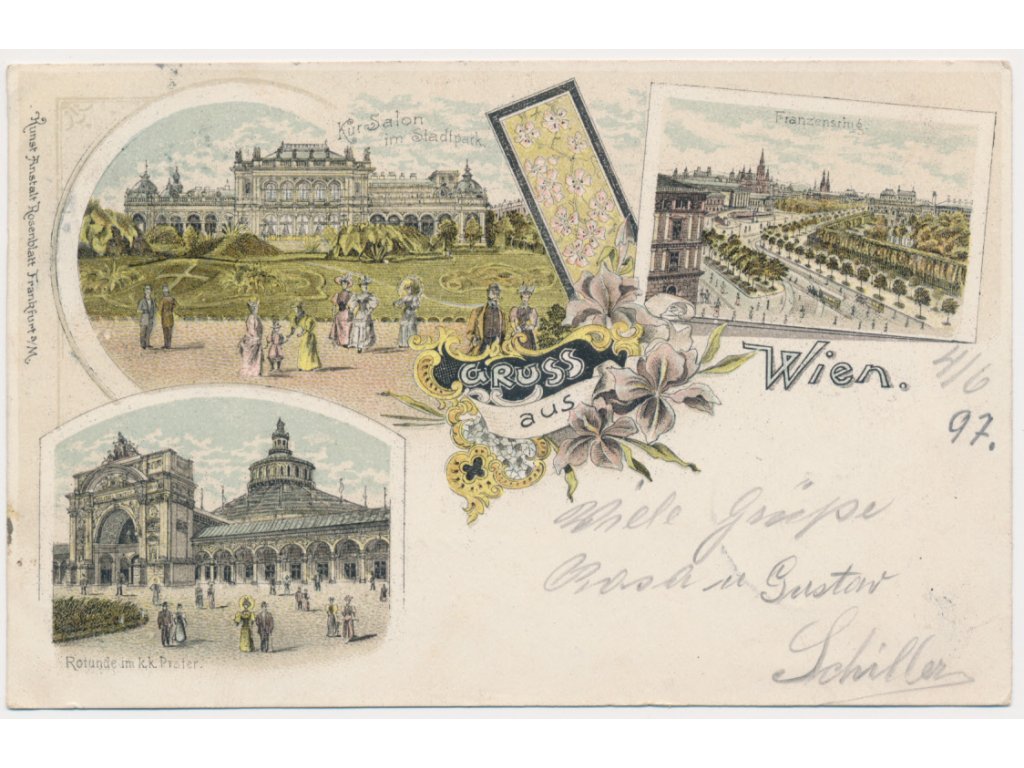 Kunst Anstalt Rosenblatt Frankfurt a/M.
Kur Salon
im Stadtpark.
Franzensring.
GRUSS
aus
Wien.
4/6
97.
Viele Grüße
Rosa u Gustav
Schiller
Rotunde im k.k. Prater.